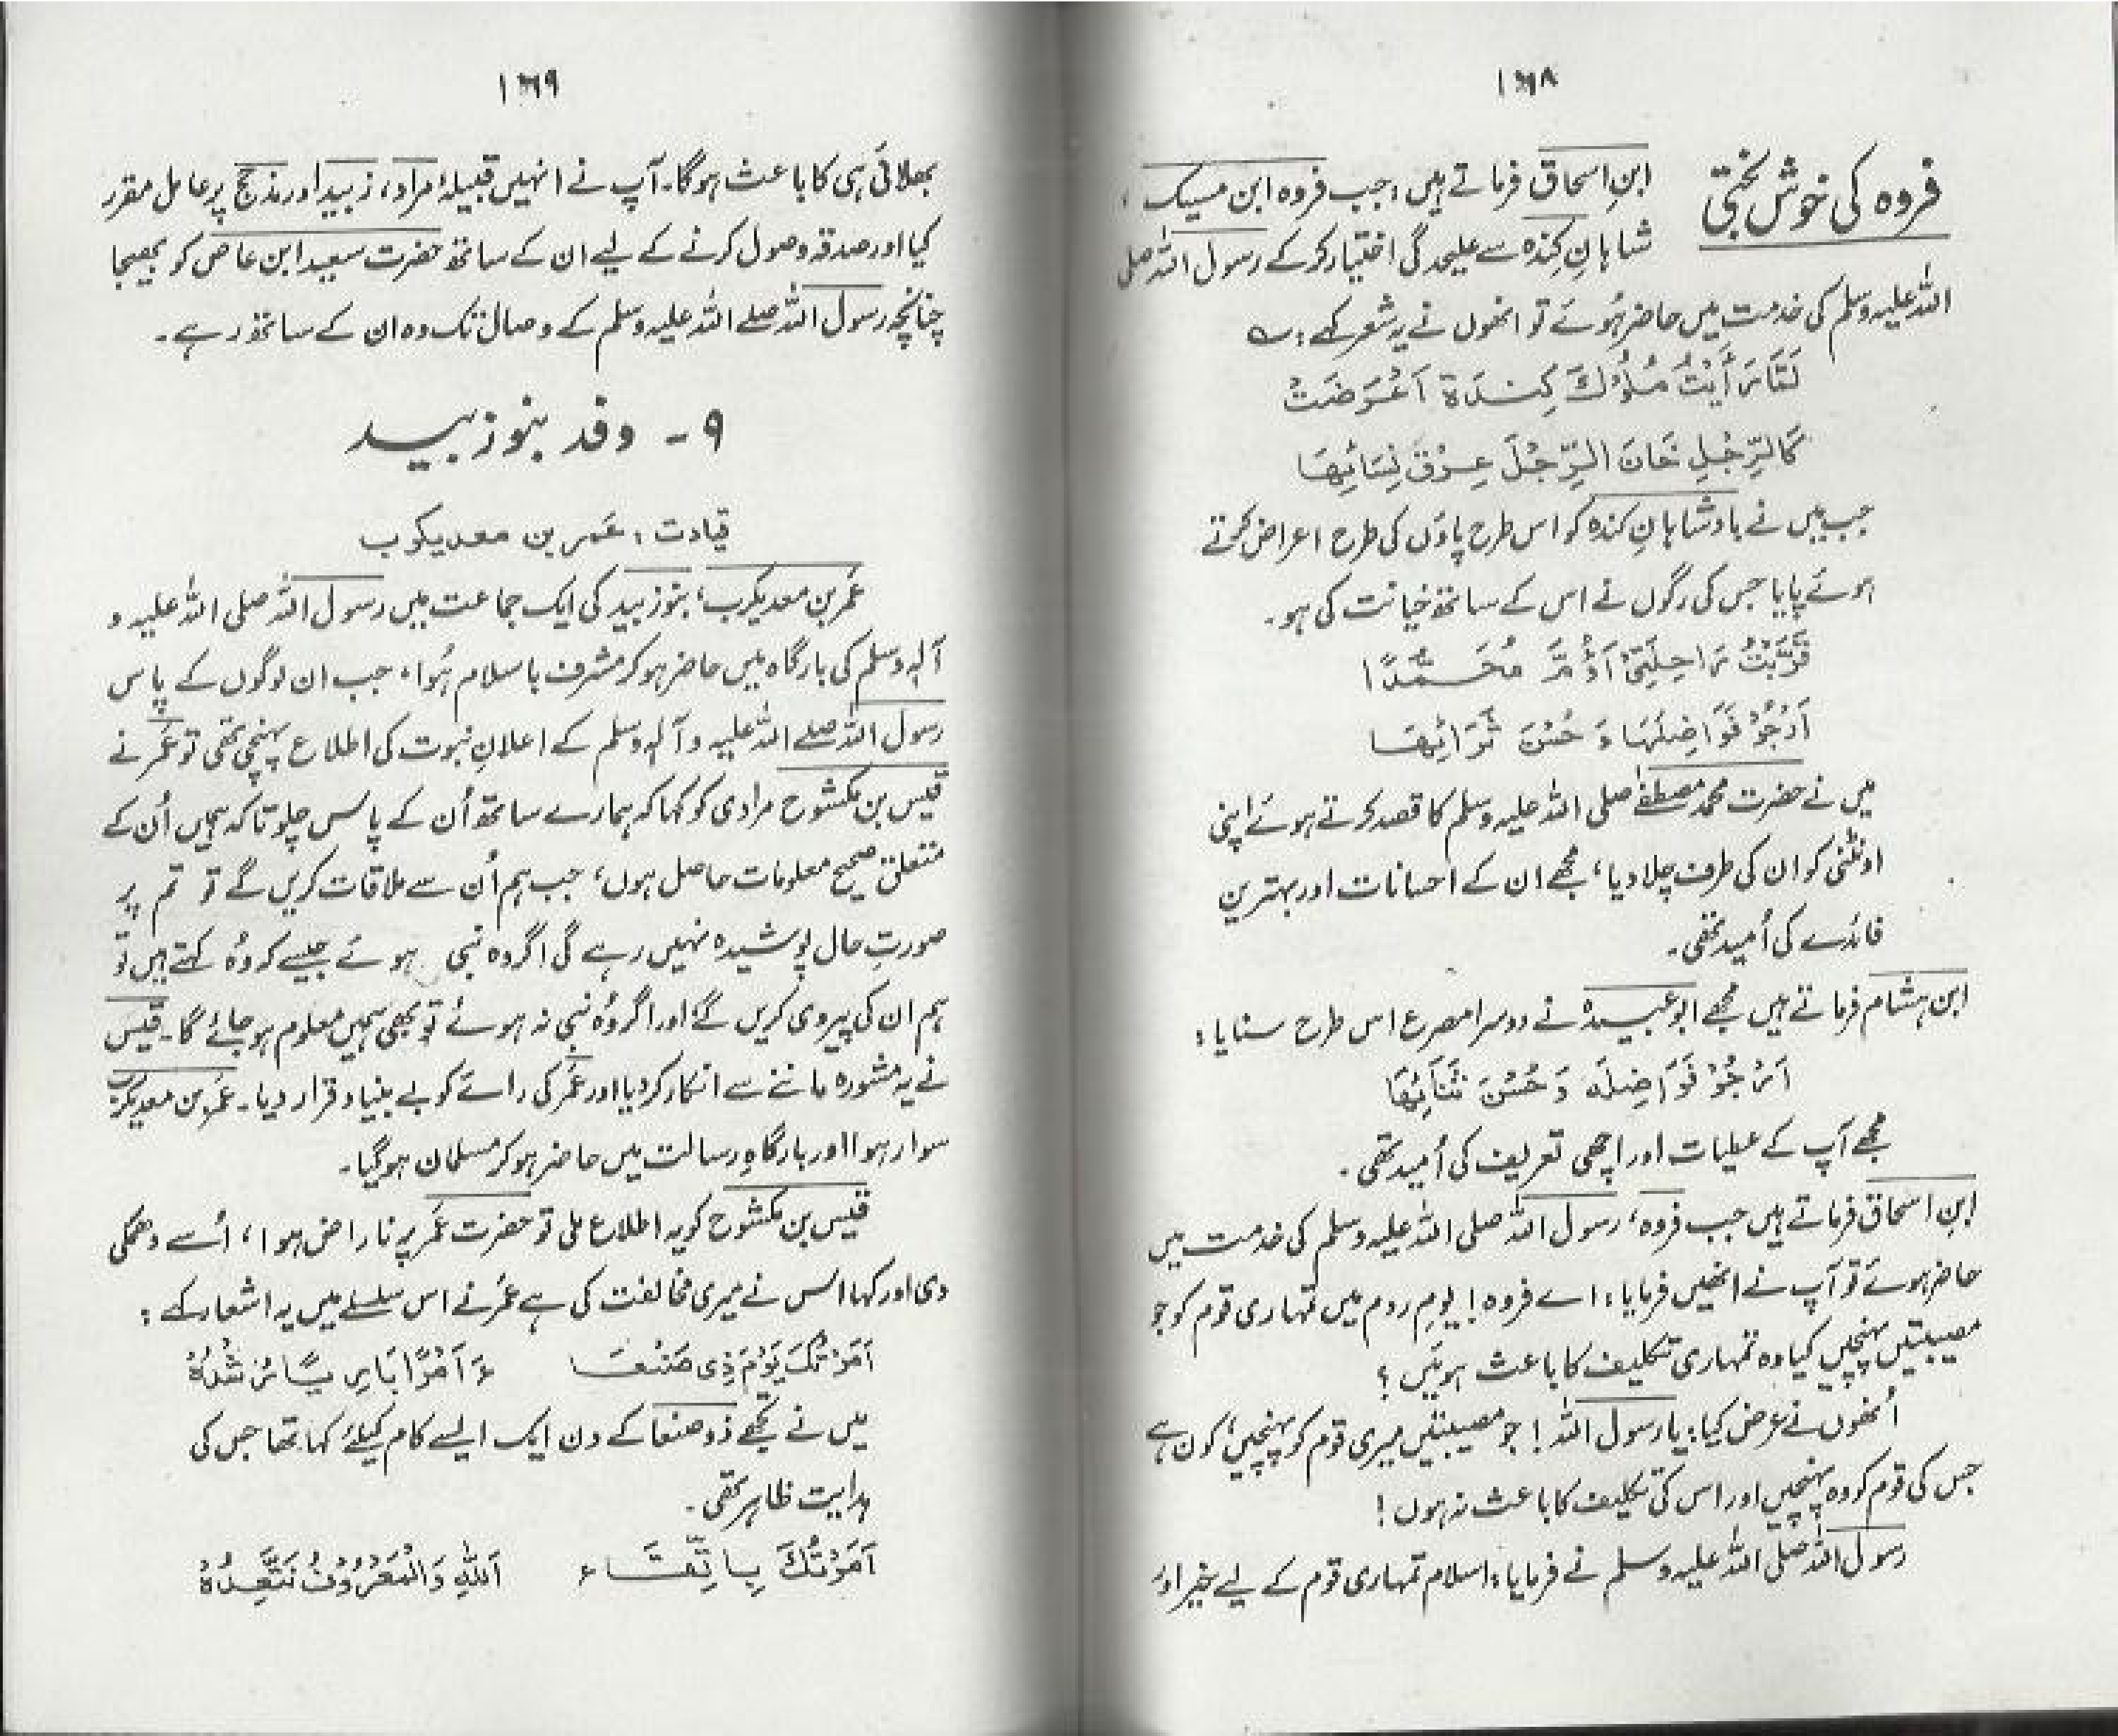 ۱۶۸
فروہ کی خوش بختی
ابنِ اسحاق فرماتے ہیں، جب فروہ ابن مسیک،
شاہانِ کِندہ سے علیحدگی اختیار کرکے رسول اللہ صلی
اللہ علیہ وسلم کی خدمت میں حاضر ہُوئے تو انھوں نے یہ شعر کہے: ؎
لَمَّا رَأَیْتُ مُلُوْكَ كِنْدَةَ اَعْرَضَتْ
كَالرِّجْلِ خَانَ الرِّجْلَ عِرْقُ نِسَائِهَا
جب میں نے بادشاہانِ کندہ کو اس طرح پاؤں کی طرح اعراض کرتے
ہوئے پایا جس کی رگوں نے اس کے ساتھ خیانت کی ہو۔
قَرَّبْتُ رَاحِلَتِیْ اَؤُمُّ مُحَمَّدًا
اَرْجُوْ فَوَاضِلَهَا وَ حُسْنَ ثَرَائِهَا
میں نے حضرت محمد مصطفےٰ صلی اللہ علیہ وسلم کا قصد کرتے ہوئے اپنی
اونٹنی کو ان کی طرف چلا دیا، مجھے ان کے احسانات اور بہترین
فائدے کی اُمید تھی۔
ابن ہشام فرماتے ہیں مجھے ابو عبیدہ نے دوسرا مصرع اس طرح سنایا:
اَرْجُوْ فَوَاضِلَهٗ وَ حُسْنَ ثَنَائِهَا
مجھے آپ کے عطیات اور اچھی تعریف کی اُمید تھی۔
ابنِ اسحاق فرماتے ہیں جب فروہ، رسول اللہ صلی اللہ علیہ وسلم کی خدمت میں
حاضر ہوئے تو آپ نے انھیں فرمایا: اے فروہ! یومِ روم میں تمہاری قوم کو جو
مصیبتیں پہنچیں کیا وہ تمہاری تکلیف کا باعث ہوئیں؟
اُنھوں نے عرض کیا: یا رسول اللہ! جو مصیبتیں میری قوم کو پہنچیں، کون ہے
جس کی قوم کو وہ پہنچیں اور اس کی تکلیف کا باعث نہ ہوں!
رسول اللہ صلی اللہ علیہ وسلم نے فرمایا: اسلام تمہاری قوم کے لیے خیر اور
۱۶۹
بھلائی ہی کا باعث ہوگا۔ آپ نے انہیں قبیلۂ مراد، زبید اور مذحج پر عامل مقرر
کیا اور صدقہ وصول کرنے کے لیے ان کے ساتھ حضرت سعید ابن عاص کو بھیجا
چنانچہ رسول اللہ صلے اللہ علیہ وسلم کے وصال تک وہ ان کے ساتھ رہے۔
۹۔ وفد بنو زبید
قیادت: عَمر بن معدیکرب
عَمر بن معدیکرب، بنو زبید کی ایک جماعت میں رسول اللہ صلی اللہ علیہ و
آلہ وسلم کی بارگاہ میں حاضر ہو کر مشرف باسلام ہُوا، جب ان لوگوں کے پاس
رسول اللہ صلے اللہ علیہ وآلہ وسلم کے اعلانِ نبوت کی اطلاع پہنچی تھی تو عَمر نے
قیس بن مکشوح مرادی کو کہا کہ ہمارے ساتھ اُن کے پاس چلو تاکہ ہمیں اُن کے
متعلق صحیح معلومات حاصل ہوں، جب ہم اُن سے ملاقات کریں گے تو تم پر
صورتِ حال پوشیدہ نہیں رہے گی اگر وہ نبی ہوئے جیسے کہ وُہ کہتے ہیں تو
ہم ان کی پیروی کریں گے اور اگر وُہ نبی نہ ہوئے تو بھی ہمیں معلوم ہو جائے گا۔ قیس
نے یہ مشورہ ماننے سے انکار کر دیا اور عَمر کی رائے کو بے بنیاد قرار دیا۔ عَمر بن معدیکرب
سوار ہوا اور بارگاہِ رسالت میں حاضر ہو کر مسلمان ہوگیا۔
قیس بن مکشوح کو یہ اطلاع ملی تو حضرت عَمر پر ناراض ہوا، اُسے دھمکی
دی اور کہا اس نے میری مخالفت کی ہے عَمر نے اس سلسلے میں یہ اشعار کہے:
اَمَرْتُكَ يَوْمَ ذِی صَنْعَا ءَ اَمْرًا بَادِیًا رُشْدُهٗ
میں نے تجھے ذو صنعا کے دن ایک ایسے کام کیلئے کہا تھا جس کی
ہدایت ظاہر تھی۔
اَمَرْتُكَ بِاتِّقَاءِ اَللّٰهِ وَالْمَعْرُوْفُ نَتَّعِدُهٗ